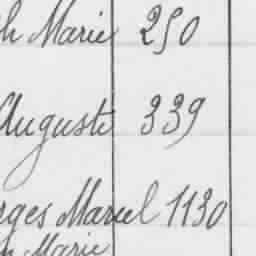 h Marie 250
Auguste 339
rges Marcel 1130
h Marie